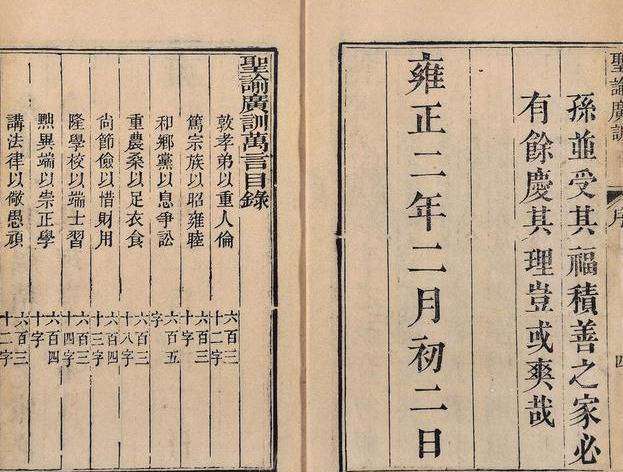 聖諭廣訓
序
四
孫並受其福積善之家必
有餘慶其理豈或爽哉
雍正二年二月初二日
聖諭廣訓萬言目錄
敦孝弟以重人倫 六百三十二字
篤宗族以昭雍睦 六百三十字
和鄉黨以息爭訟 六百五字
重農桑以足衣食 六百三十八字
尚節儉以惜財用 六百四十三字
隆學校以端士習 六百三十四字
黜異端以崇正學 六百四十字
講法律以儆愚頑 六百三十二字